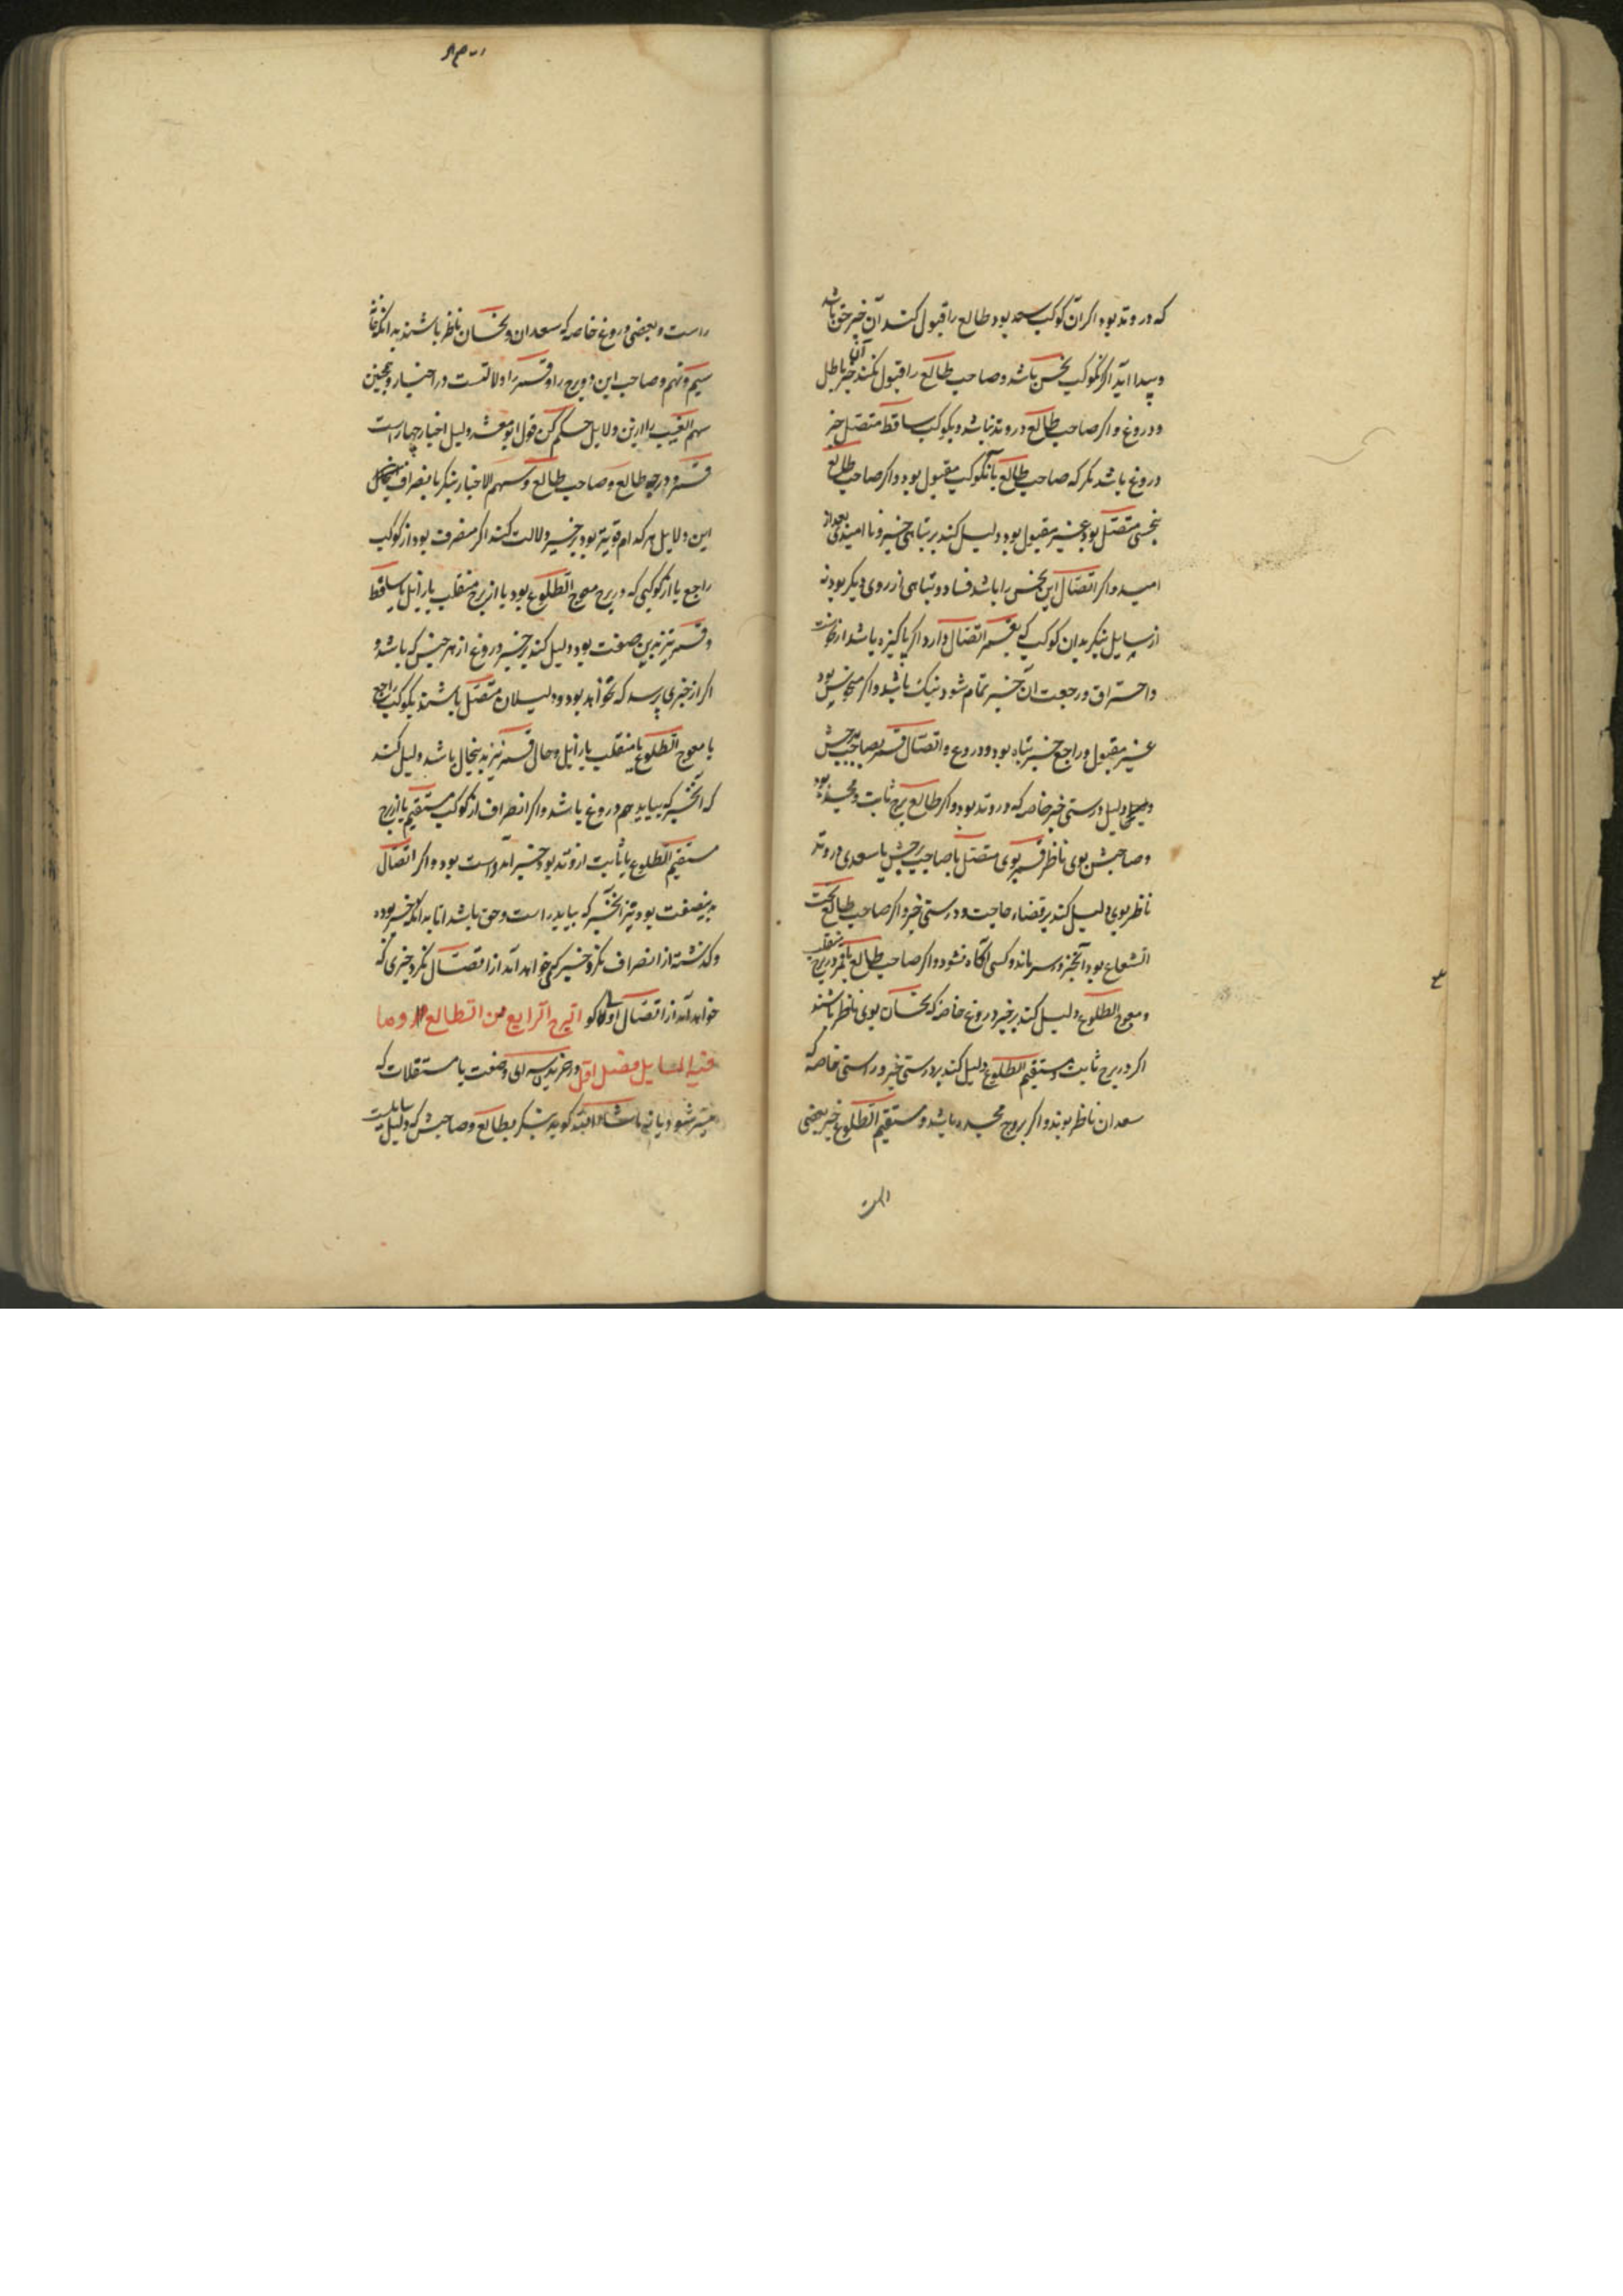 که در وتد بود اگر آن کوکب سعد بود طالع را قبول کند آن خبر حق باشد
و پیدا آید اگر آنکوکب نحس باشد و صاحب طالع را قبول نکند آن خبر باطل
و دروغ و اگر صاحب طالع در وتد نباشد و بکوکب ساقط متصل خبر
دروغ باشد مگر که صاحب طالع بآنکوکب مقبول بود و اگر صاحب طالع
بنحسی متصل بود و غیر مقبول بود دلیل کند بر تباهی خبر و نا امیدی بعد از
امید و اگر اتصال این نحس را باشد فساد و تباهی از روی دیگر بود نه
از سایل بنگر بدان کوکب که بقمر اتصال دارد اگر پاکیزه باشد از نحاست
و احتراق و رجعت آن خبر تمام شود و نیک باشد و اگر منحوس بود
غیر مقبول و راجع خبر تباه بود و دروغ و اتصال قمر بصاحب برجش
دلیل درستی خبر خاصه که در وتد بود و اگر طالع برج ثابت و مجسد بود
و صاحبش بوی ناظر قمر بوی متصل یا صاحب برجش یا سعدی در وتد
ناظر بوی دلیل کند بر قضاء حاجت و درستی خبر و اگر صاحب طالع تحت
الشعاع بود آنخبر در سر ماند و کسی آگاه نشود و اگر صاحب طالع یا قمر در برج منقلب
و معوج الطلوع دلیل کند بر خبر دروغ خاصه که نحسان بوی ناظر باشند
اگر در برج ثابت و مستقیم الطلوع دلیل کند بر درستی خبر و راستی خاصه که
سعدان ناظر بوند و اگر بروج مجسده باشد و مستقیم الطلوع خبر بعضی
راست
راست و بعضی دروغ خاصه که سعدان و نحسان ناظر باشند بدانکه خانه
سیم و نهم و صاحب این دو برج را و قمر را دلالتست در اخبار و همچنین
سهم الغیب را ازین دلایل حکم کن قول ابو معشر دلیل اخبار چهار است
قمر و درجه طالع و صاحب طالع و سهم الاخبار بنگر بانصراف
این دلایل هر کدام قویتر بود بر خبر دلالت کند اگر منصرف بود از کوکب
راجع یا از کوکبی که در برج معوج الطلوع بود یا از برج منقلب یا زایل یا ساقط
و قمر نیز بدین صفت بود دلیل کند بر خبر دروغ از هر جنس که باشد و
اگر از خبری پرسد که نخواهد بود و دلیلان متصل باشند بکوکب راجع
یا معوج الطلوع یا منقلب یا زایل و حال قمر نیز بدینحال باشد دلیل کند
که آنخبر که بیاید هم دروغ باشد و اگر انصراف از کوکب مستقیم یا از برج
مستقیم الطلوع یا ثابت از وتد بود خبر آمد راست بود و اگر اتصال
بدینصفت بود نیز آنخبر که بیاید راست و حق باشد اما بدانکه خبر بوده
و گذشته از انصراف نگر و خبر که خواهد آمد از اتصال نگر و خبری که
خواهد آمد از اتصال اولا گو البرج الرابع من الطالع وما
فیه المسایل فصل اول در خریدن سرای و ضعت یا مستقلات که
میسر شود یا نه ماشاءالله گوید بنگر بطالع و صاحبش که دلیل سایلست